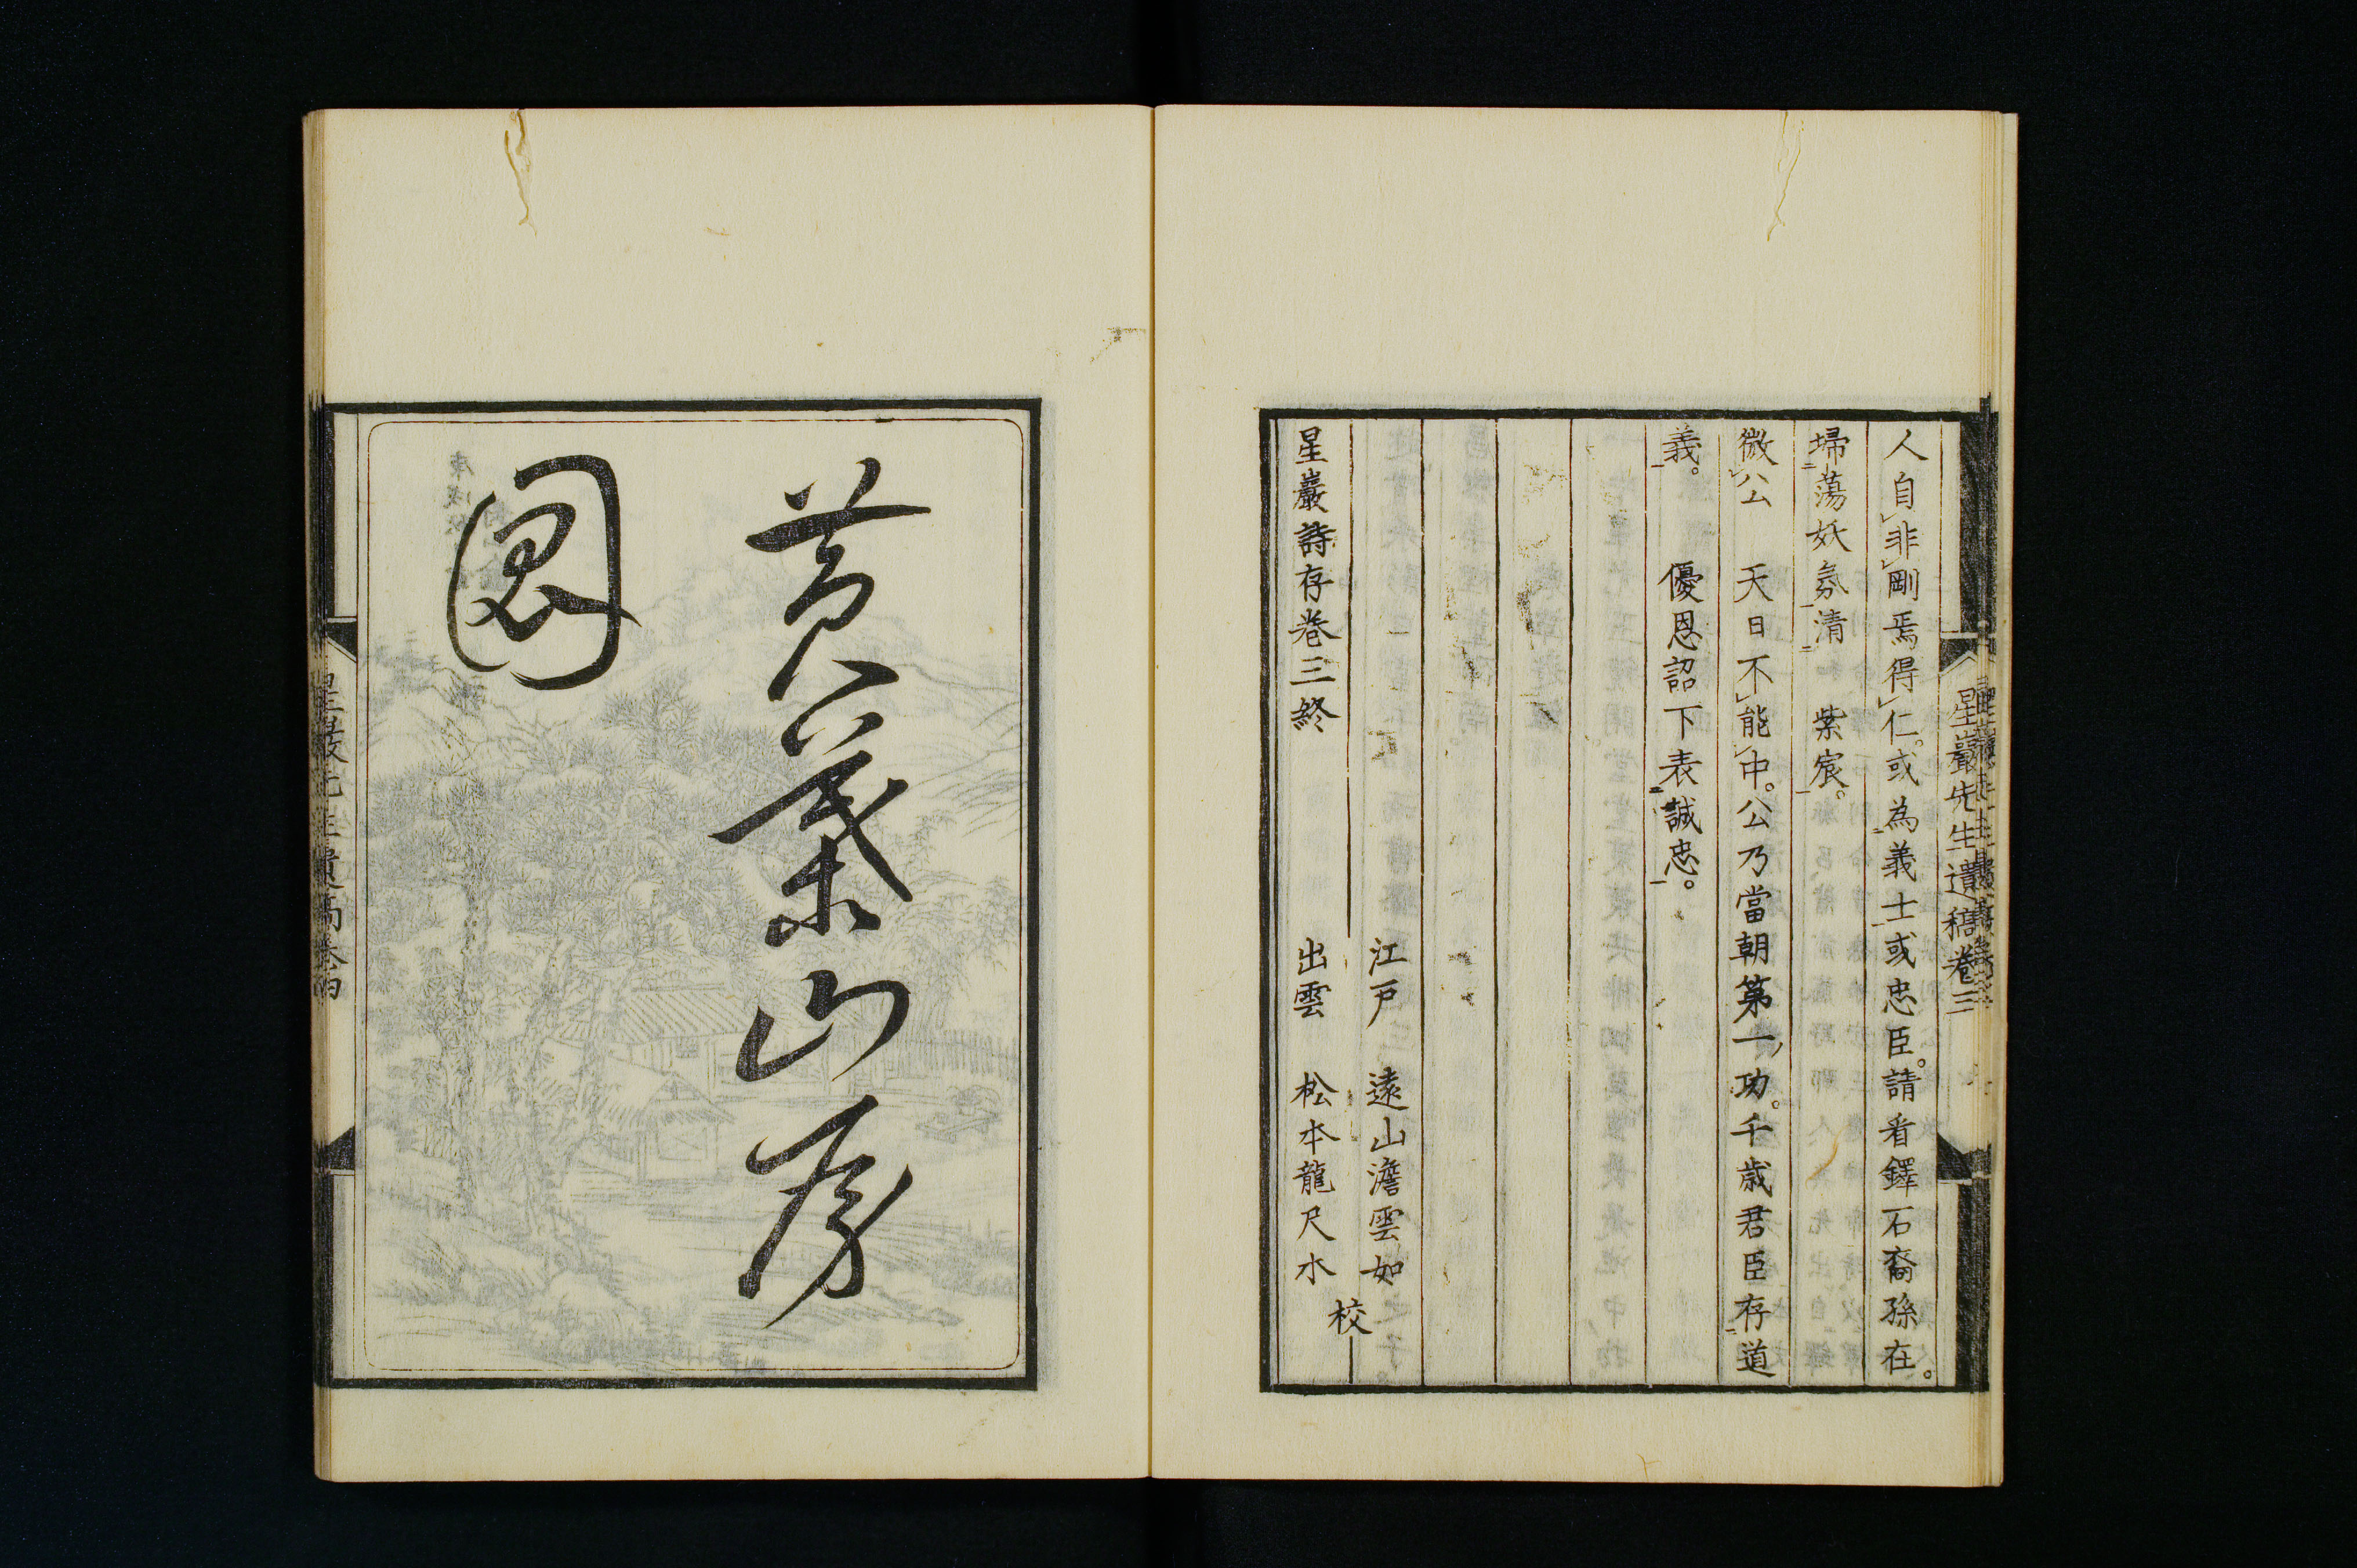 星巖先生遺稿卷三
人自非剛焉得仁。或為義士或忠臣。請看鐸石裔孫在。
埽蕩妖氛清　紫宸。
微公　天日不能中。公乃當朝第一功。千歲君臣存道
義。　優恩詔下表誠忠。
江戸　遠山澹雲如
出雲　松本龍尺水
校
星巖詩存卷三終
黄葉山房
圖
星巖先生遺稿卷四